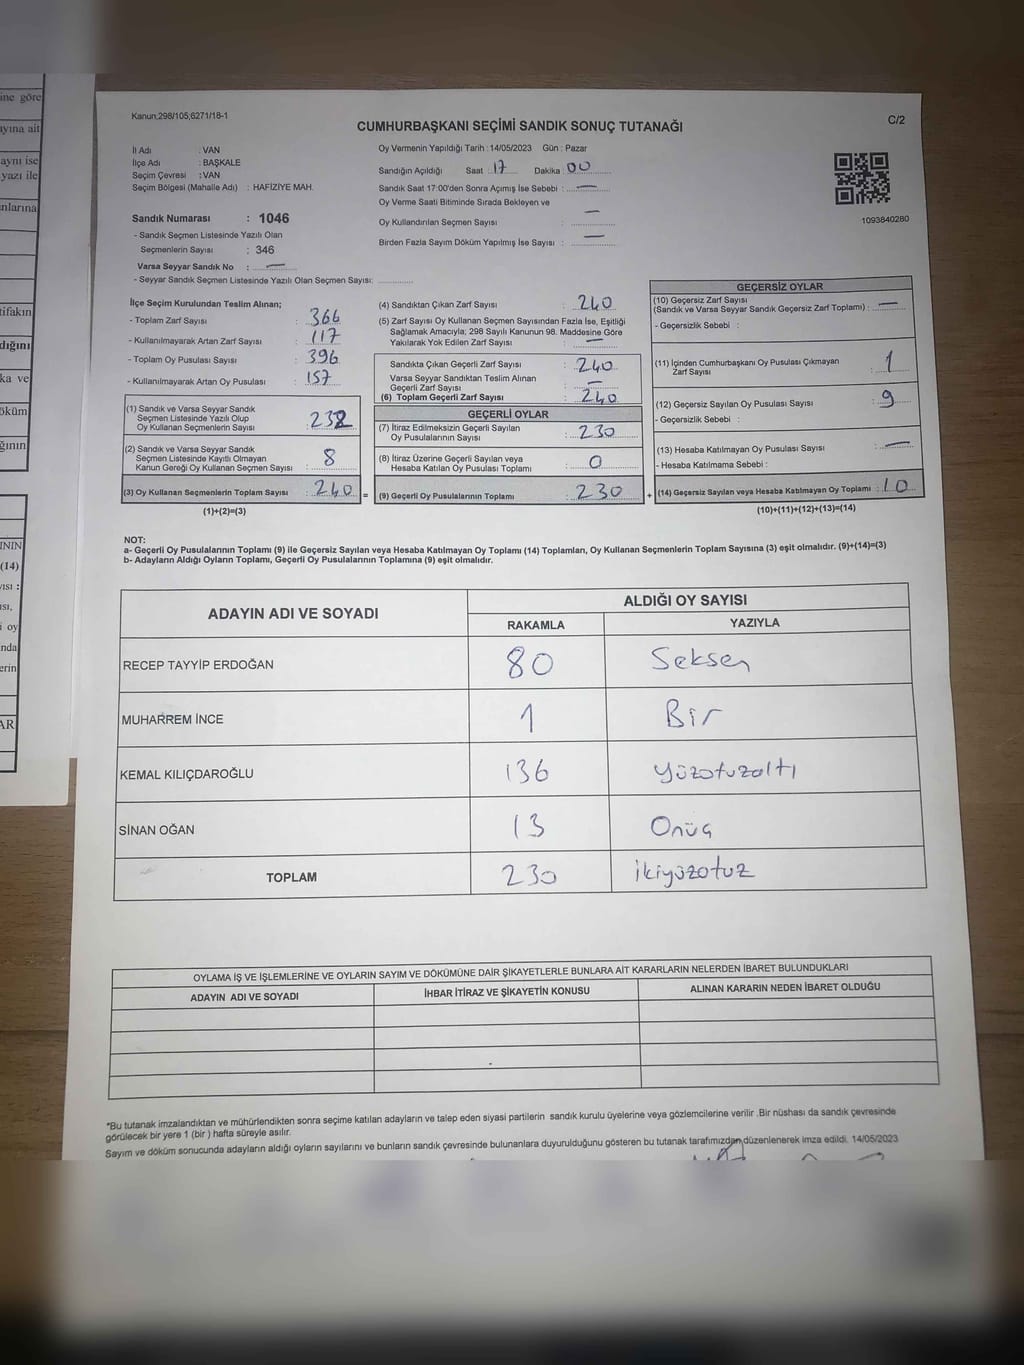 ine göre
ayına ait
aynı ise
yazı ile
nlarına
ifakın
dığını
ka ve
öküm
ğının
ININ
(14)
ısı :
ısı,
i oy
nda
erin
AR
Kanun;298/105,6271/18-1
C/2
CUMHURBAŞKANI SEÇİMİ SANDIK SONUÇ TUTANAĞI
İl Adı : VAN
İlçe Adı : BAŞKALE
Seçim Çevresi : VAN
Seçim Bölgesi (Mahalle Adı) : HAFİZİYE MAH.
Sandık Numarası : 1046
- Sandık Seçmen Listesinde Yazılı Olan
Seçmenlerin Sayısı : 346
Varsa Seyyar Sandık No : —
- Seyyar Sandık Seçmen Listesinde Yazılı Olan Seçmen Sayısı:
Oy Vermenin Yapıldığı Tarih : 14/05/2023 Gün : Pazar
Sandığın Açıldığı Saat 17 Dakika 00
Sandık Saat 17:00'den Sonra Açımış İse Sebebi : —
Oy Verme Saati Bitiminde Sırada Bekleyen ve
Oy Kullandırılan Seçmen Sayısı : —
Birden Fazla Sayım Döküm Yapılmış İse Sayısı : —
1093840280
İlçe Seçim Kurulundan Teslim Alınan;
- Toplam Zarf Sayısı : 366
- Kullanılmayarak Artan Zarf Sayısı : 117
- Toplam Oy Pusulası Sayısı : 396
- Kullanılmayarak Artan Oy Pusulası : 157
(1) Sandık ve Varsa Seyyar Sandık
Seçmen Listesinde Yazılı Olup
Oy Kullanan Seçmenlerin Sayısı : 232
(2) Sandık ve Varsa Seyyar Sandık
Seçmen Listesinde Kayıtlı Olmayan
Kanun Gereği Oy Kullanan Seçmen Sayısı : 8
(3) Oy Kullanan Seçmenlerin Toplam Sayısı : 240 =
(1)+(2)=(3)
(4) Sandıktan Çıkan Zarf Sayısı : 240
(5) Zarf Sayısı Oy Kullanan Seçmen Sayısından Fazla İse, Eşitliği
Sağlamak Amacıyla; 298 Sayılı Kanunun 98. Maddesine Göre
Yakılarak Yok Edilen Zarf Sayısı : —
Sandıkta Çıkan Geçerli Zarf Sayısı : 240
Varsa Seyyar Sandıktan Teslim Alınan
Geçerli Zarf Sayısı : —
(6) Toplam Geçerli Zarf Sayısı : 240
GEÇERLİ OYLAR
(7) İtiraz Edilmeksizin Geçerli Sayılan
Oy Pusulalarının Sayısı : 230
(8) İtiraz Üzerine Geçerli Sayılan veya
Hesaba Katılan Oy Pusulası Toplamı : 0
(9) Geçerli Oy Pusulalarının Toplamı : 230 +
GEÇERSİZ OYLAR
(10) Geçersiz Zarf Sayısı
(Sandık ve Varsa Seyyar Sandık Geçersiz Zarf Toplamı) : —
- Geçersizlik Sebebi :
(11) İçinden Cumhurbaşkanı Oy Pusulası Çıkmayan
Zarf Sayısı : 1
(12) Geçersiz Sayılan Oy Pusulası Sayısı : 9
- Geçersizlik Sebebi :
(13) Hesaba Katılmayan Oy Pusulası Sayısı : —
- Hesaba Katılmama Sebebi :
(14) Geçersiz Sayılan veya Hesaba Katılmayan Oy Toplamı : 10
(10)+(11)+(12)+(13)=(14)
NOT:
a- Geçerli Oy Pusulalarının Toplamı (9) ile Geçersiz Sayılan veya Hesaba Katılmayan Oy Toplamı (14) Toplamları, Oy Kullanan Seçmenlerin Toplam Sayısına (3) eşit olmalıdır. (9)+(14)=(3)
b- Adayların Aldığı Oyların Toplamı, Geçerli Oy Pusulalarının Toplamına (9) eşit olmalıdır.
ADAYIN ADI VE SOYADI ALDIĞI OY SAYISI
RAKAMLA YAZIYLA
RECEP TAYYİP ERDOĞAN 80 Seksen
MUHARREM İNCE 1 Bir
KEMAL KILIÇDAROĞLU 136 Yüzotuzaltı
SİNAN OĞAN 13 Onüç
TOPLAM 230 ikiyüzotuz
OYLAMA İŞ VE İŞLEMLERİNE VE OYLARIN SAYIM VE DÖKÜMÜNE DAİR ŞİKAYETLERLE BUNLARA AİT KARARLARIN NELERDEN İBARET BULUNDUKLARI
ADAYIN ADI VE SOYADI İHBAR İTİRAZ VE ŞİKAYETİN KONUSU ALINAN KARARIN NEDEN İBARET OLDUĞU
*Bu tutanak imzalandıktan ve mühürlendikten sonra seçime katılan adayların ve talep eden siyasi partilerin sandık kurulu üyelerine veya gözlemcilerine verilir .Bir nüshası da sandık çevresinde
görülecek bir yere 1 (bir ) hafta süreyle asılır.
Sayım ve döküm sonucunda adayların aldığı oyların sayılarını ve bunların sandık çevresinde bulunanlara duyurulduğunu gösteren bu tutanak tarafımızdan düzenlenerek imza edildi. 14/05/2023